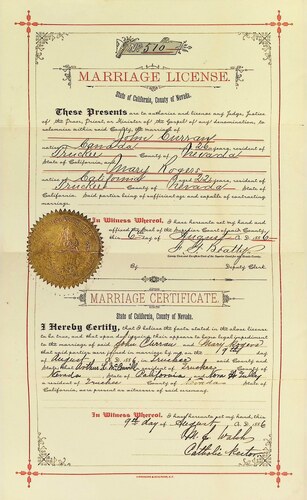 No. 510
MARRIAGE LICENSE.
State of California, County of Nevada.
These Presents are to authorize and license any Judge, Justice
of the Peace, Priest, or Minister of the Gospel of any denomination, to
solemnize within said County, the marriage of
John Curran
native of Canada aged 26 years, resident of
Truckee County of Nevada
State of California, and
Mary Rogers
native of California aged 22 years, resident of
Truckee County of Nevada State of
California. Said parties being of sufficient age and capable of contracting
marriage.
In Witness Whereof, I have hereunto set my hand and
affixed the Seal of the Superior Court of said County,
this 6 day of August A. D. 1886
By Deputy Clerk
MARRIAGE CERTIFICATE.
State of California, County of Nevada.
I Hereby Certify, that I believe the facts stated in the above license
to be true, and that upon due inquiry there appears to be no legal impediment
to the marriage of said John Curran and Mary Rogers
that said parties were joined in marriage by me on the 9th day
of August A. D. 1886 in Truckee
State of California; and a resident of Truckee County of
Nevada State of California and
a resident of Truckee County of Nevada State of
California, were present as witnesses of said ceremony.
In Witness Whereof, I have hereunto set my hand, this
9th day of August, A. D. 1886
Walsh
Catholic Rector